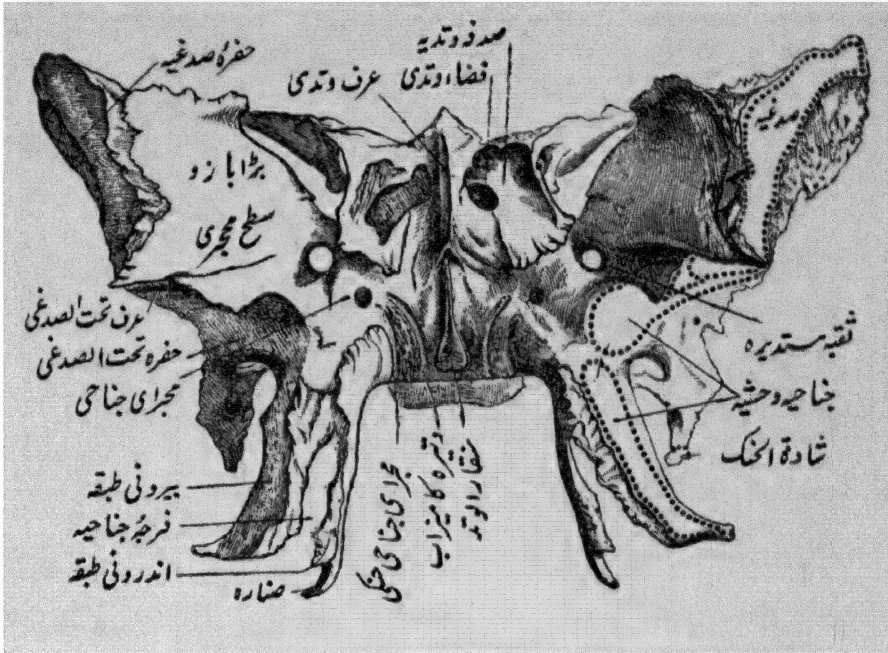 صدفہ وتدیہ
فضاء وتدی
عرف وتدی
حفرۂ صدغیہ
صدغیہ
بڑا بازو
سطح مجری
عرف تحت الصدغی
حفرہ تحت الصدغی
مجرای جناحی
ثقبہ مستدیرہ
جناحیہ وحشیہ
شادۃ الحنک
بیرونی طبقہ
فرجۂ جناحیہ
اندرونی طبقہ
صنارہ
مجرای جناحی حنکی
وتیرہ کا میزاب
منقار الوتد